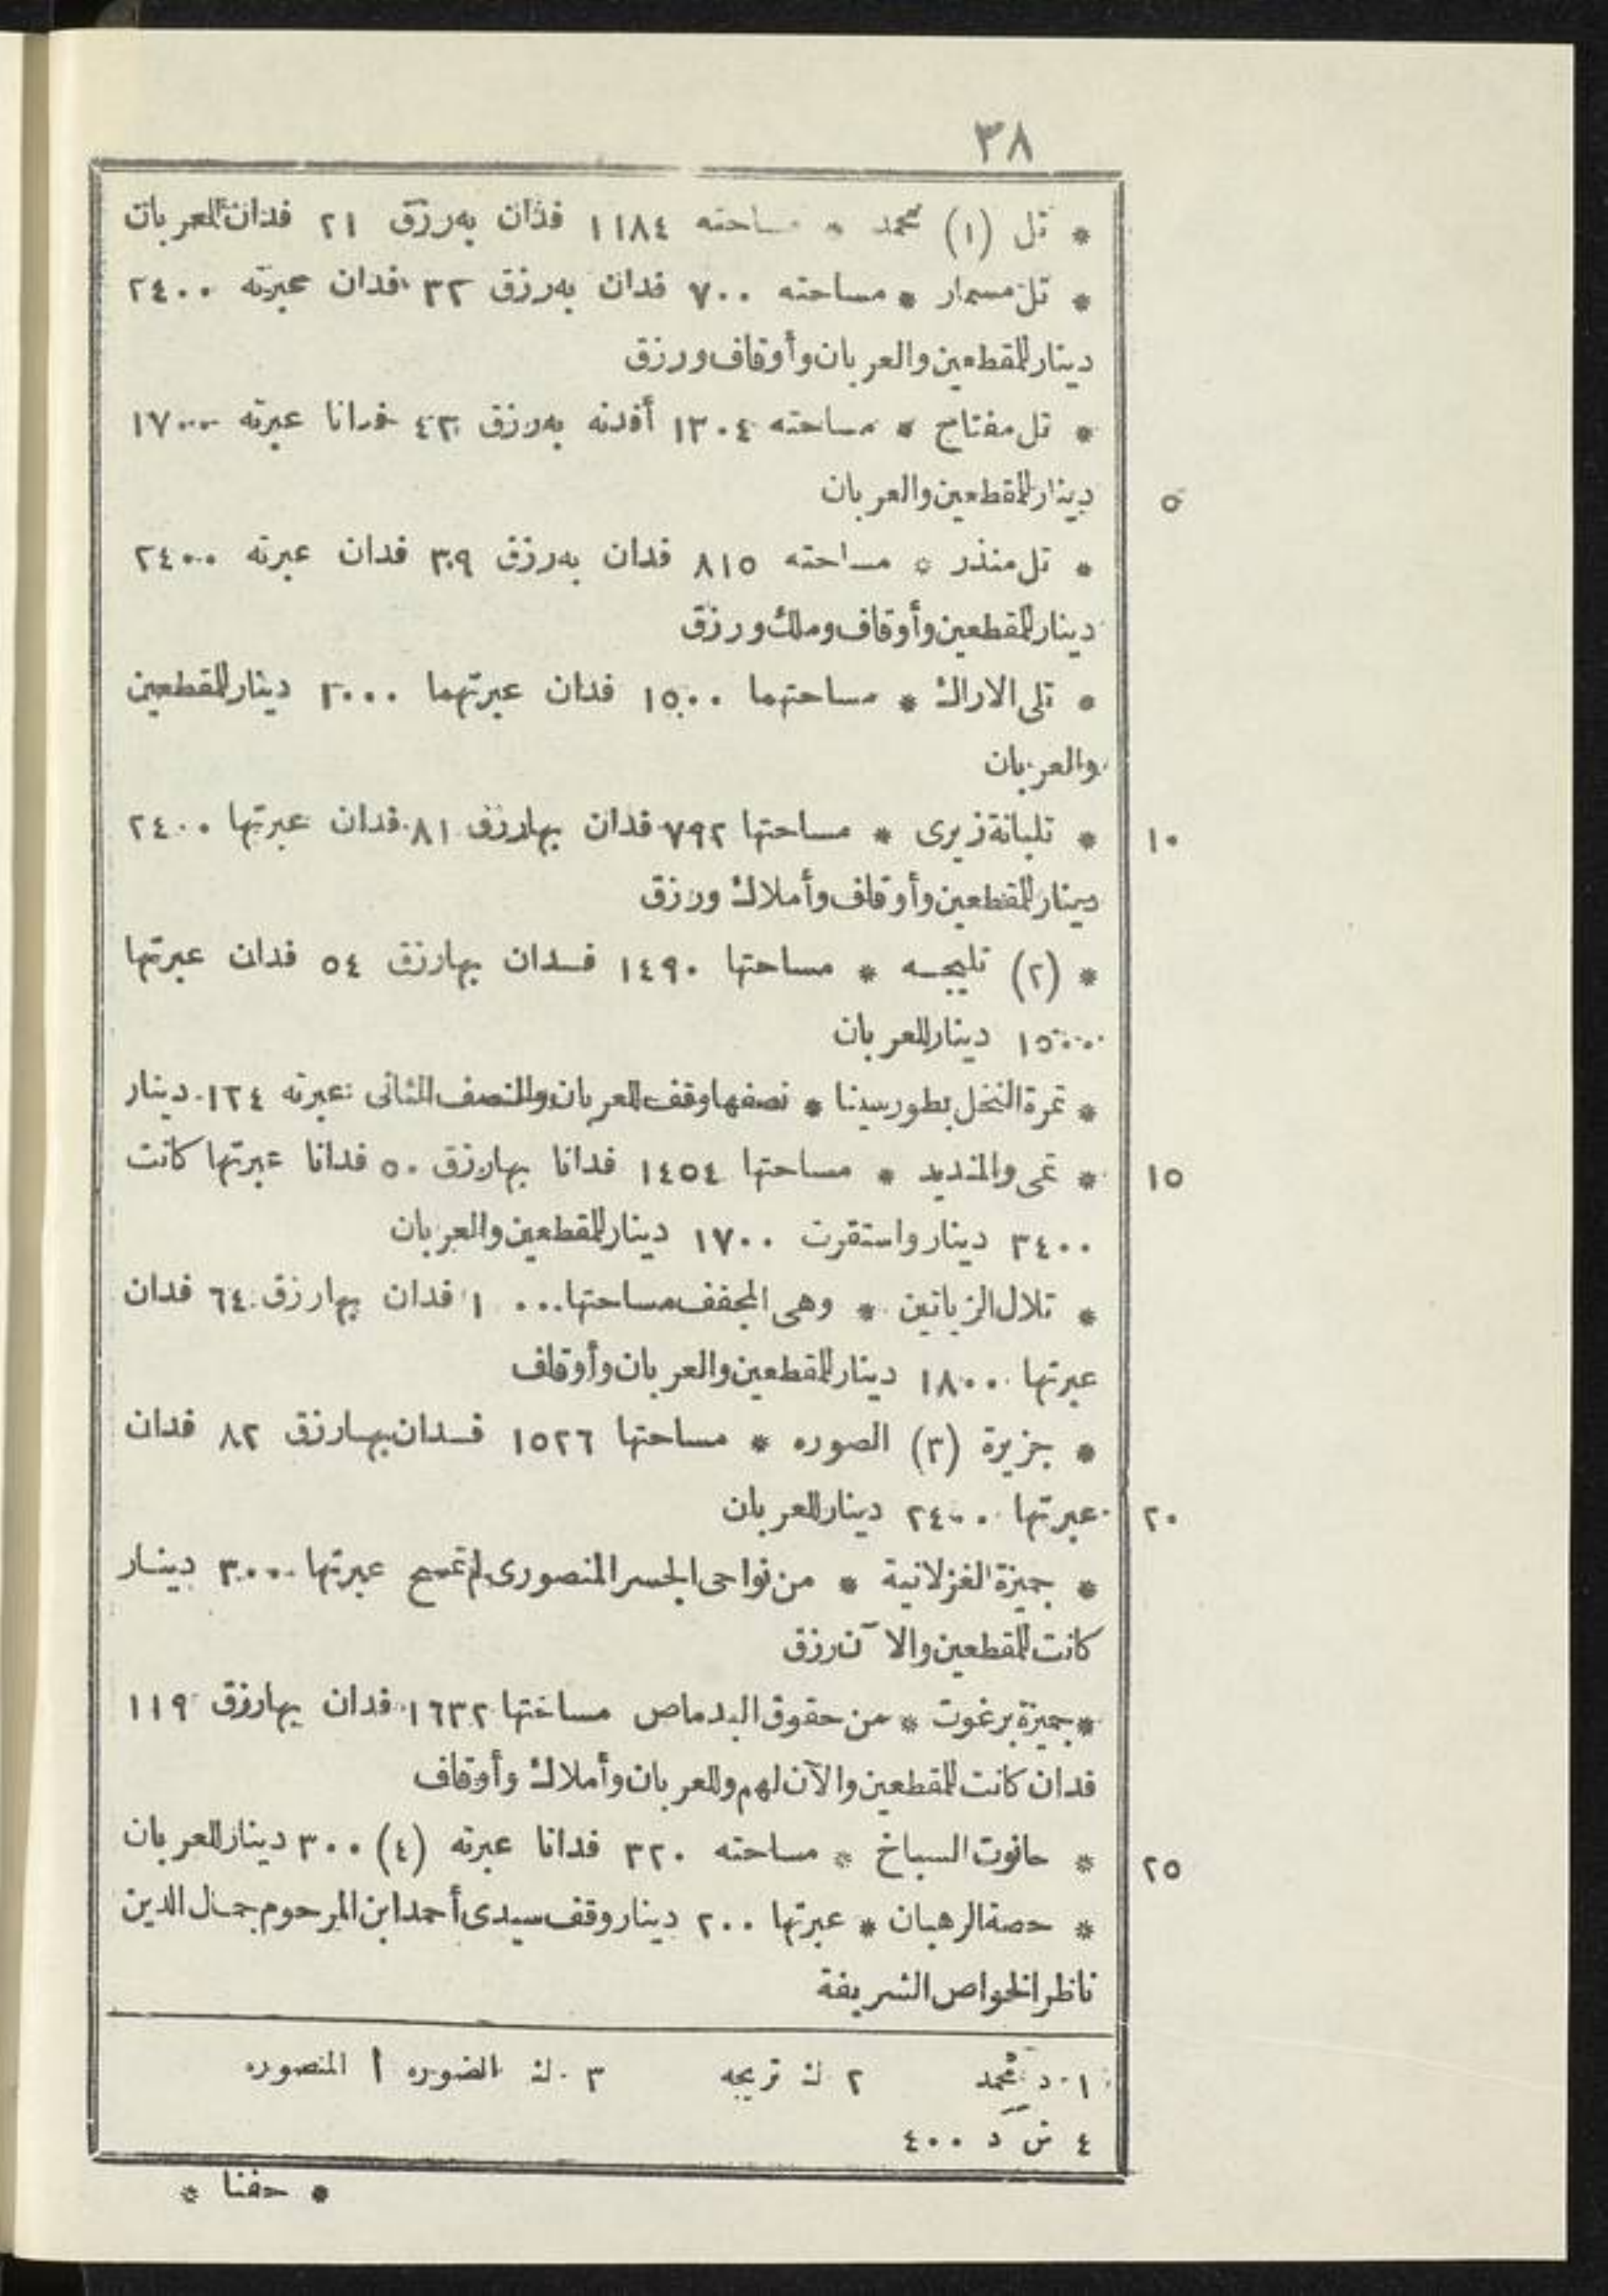 ٣٨
* تل (١) محمد * مساحته ١١٨٤ فدان به رزق ٢١ فدان للعربان
* تل مسمار * مساحته ٧٠٠ فدان به رزق ٣٢ فدان عبرته ٢٤٠٠
دينار للمقطعين والعربان وأوقاف ورزق
* تل مفتاح * مساحته ١٣٠٤ أفدنه به رزق ٤٣ فدانا عبرته ١٧٠٠٠
٥ دينار للمقطعين والعربان
* تل منذر * مساحته ٨١٥ فدان به رزق ٣٩ فدان عبرته ٢٤٠٠
دينار للمقطعين وأوقاف وملك ورزق
* تلى الاراك * مساحتهما ١٥٠٠ فدان عبرتهما ٢٠٠٠ دينار للمقطعين
والعربان
١٠ * تلبانة زيرى * مساحتها ٧٩٢ فدان بها رزق ٨١ فدان عبرتها ٢٤٠٠
دينار للمقطعين وأوقاف وأملاك ورزق
* (٢) تليجه * مساحتها ١٤٩٠ فدان بها رزق ٥٤ فدان عبرتها
١٥٠٠٠ دينار للعربان
* تمرة النخل بطور سينا * نصفها وقف للعربان والنصف الثانى عبرته ١٢٤ دينار
١٥ * تمى والمنديد * مساحتها ١٤٥٤ فدانا بها رزق ٥٠ فدانا عبرتها كانت
٣٤٠٠ دينار واستقرت ١٧٠٠ دينار للمقطعين والعربان
* تلال الزياتين * وهى المجفف مساحتها ١٠٠٠ فدان بها رزق ٦٤ فدان
عبرتها ١٨٠٠ دينار للمقطعين والعربان وأوقاف
* جزيرة (٣) الصوره * مساحتها ١٥٢٦ فدان بها رزق ٨٢ فدان
٢٠ عبرتها ٢٤٠٠ دينار للعربان
* جميزة الغزلانية * من نواحى الجسر المنصورى لم تمسح عبرتها ٣٠٠٠ دينار
كانت للمقطعين والآن رزق
* جميزة برغوت * من حقوق البدماص مساحتها ١٦٣٢ فدان بها رزق ١١٩
فدان كانت للمقطعين والآن لهم وللعربان وأملاك وأوقاف
٢٥ * حانوت السباخ * مساحته ٣٢٠ فدانا عبرته (٤) ٣٠٠ دينار للعربان
* حصة الرهبان * عبرتها ٢٠٠ دينار وقف سيدى أحمد ابن المرحوم جمال الدين
ناظر الخواص الشريفة
١ د مُحمد ٢ ك تريجه ٣ ك الضوره أ المنصوره
٤ ش د ٤٠٠
* حفنا *